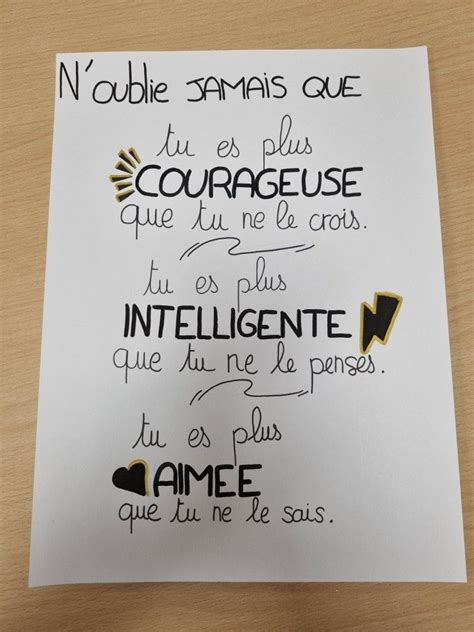 N'oublie JAMAIS QUE
tu es plus
COURAGEUSE
que tu ne le crois.
tu es plus
INTELLIGENTE
que tu ne le penses.
tu es plus
AIMEE
que tu ne le sais.